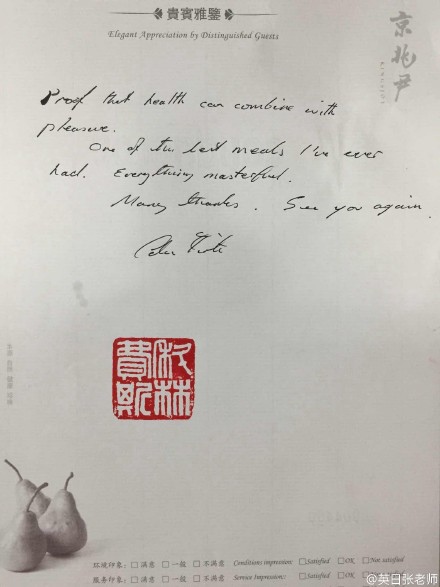 貴賓雅鑒
Elegant Appreciation by Distinguished Guests
京兆尹
KING'S JOY
Proof that health can combine with
pleasure.
One of the best meals I've ever
had. Everything masterful.
Many thanks. See you again.
Colin Firth
林
費斯
环境印象: □ 满意 □ 一般 □ 不满意 Conditions impression: □Satisfied □OK □Not satisfied
服务印象: □ 满意 □ 一般 □ 不满意 Service Impression: □Satisfied □OK
@英日张老师